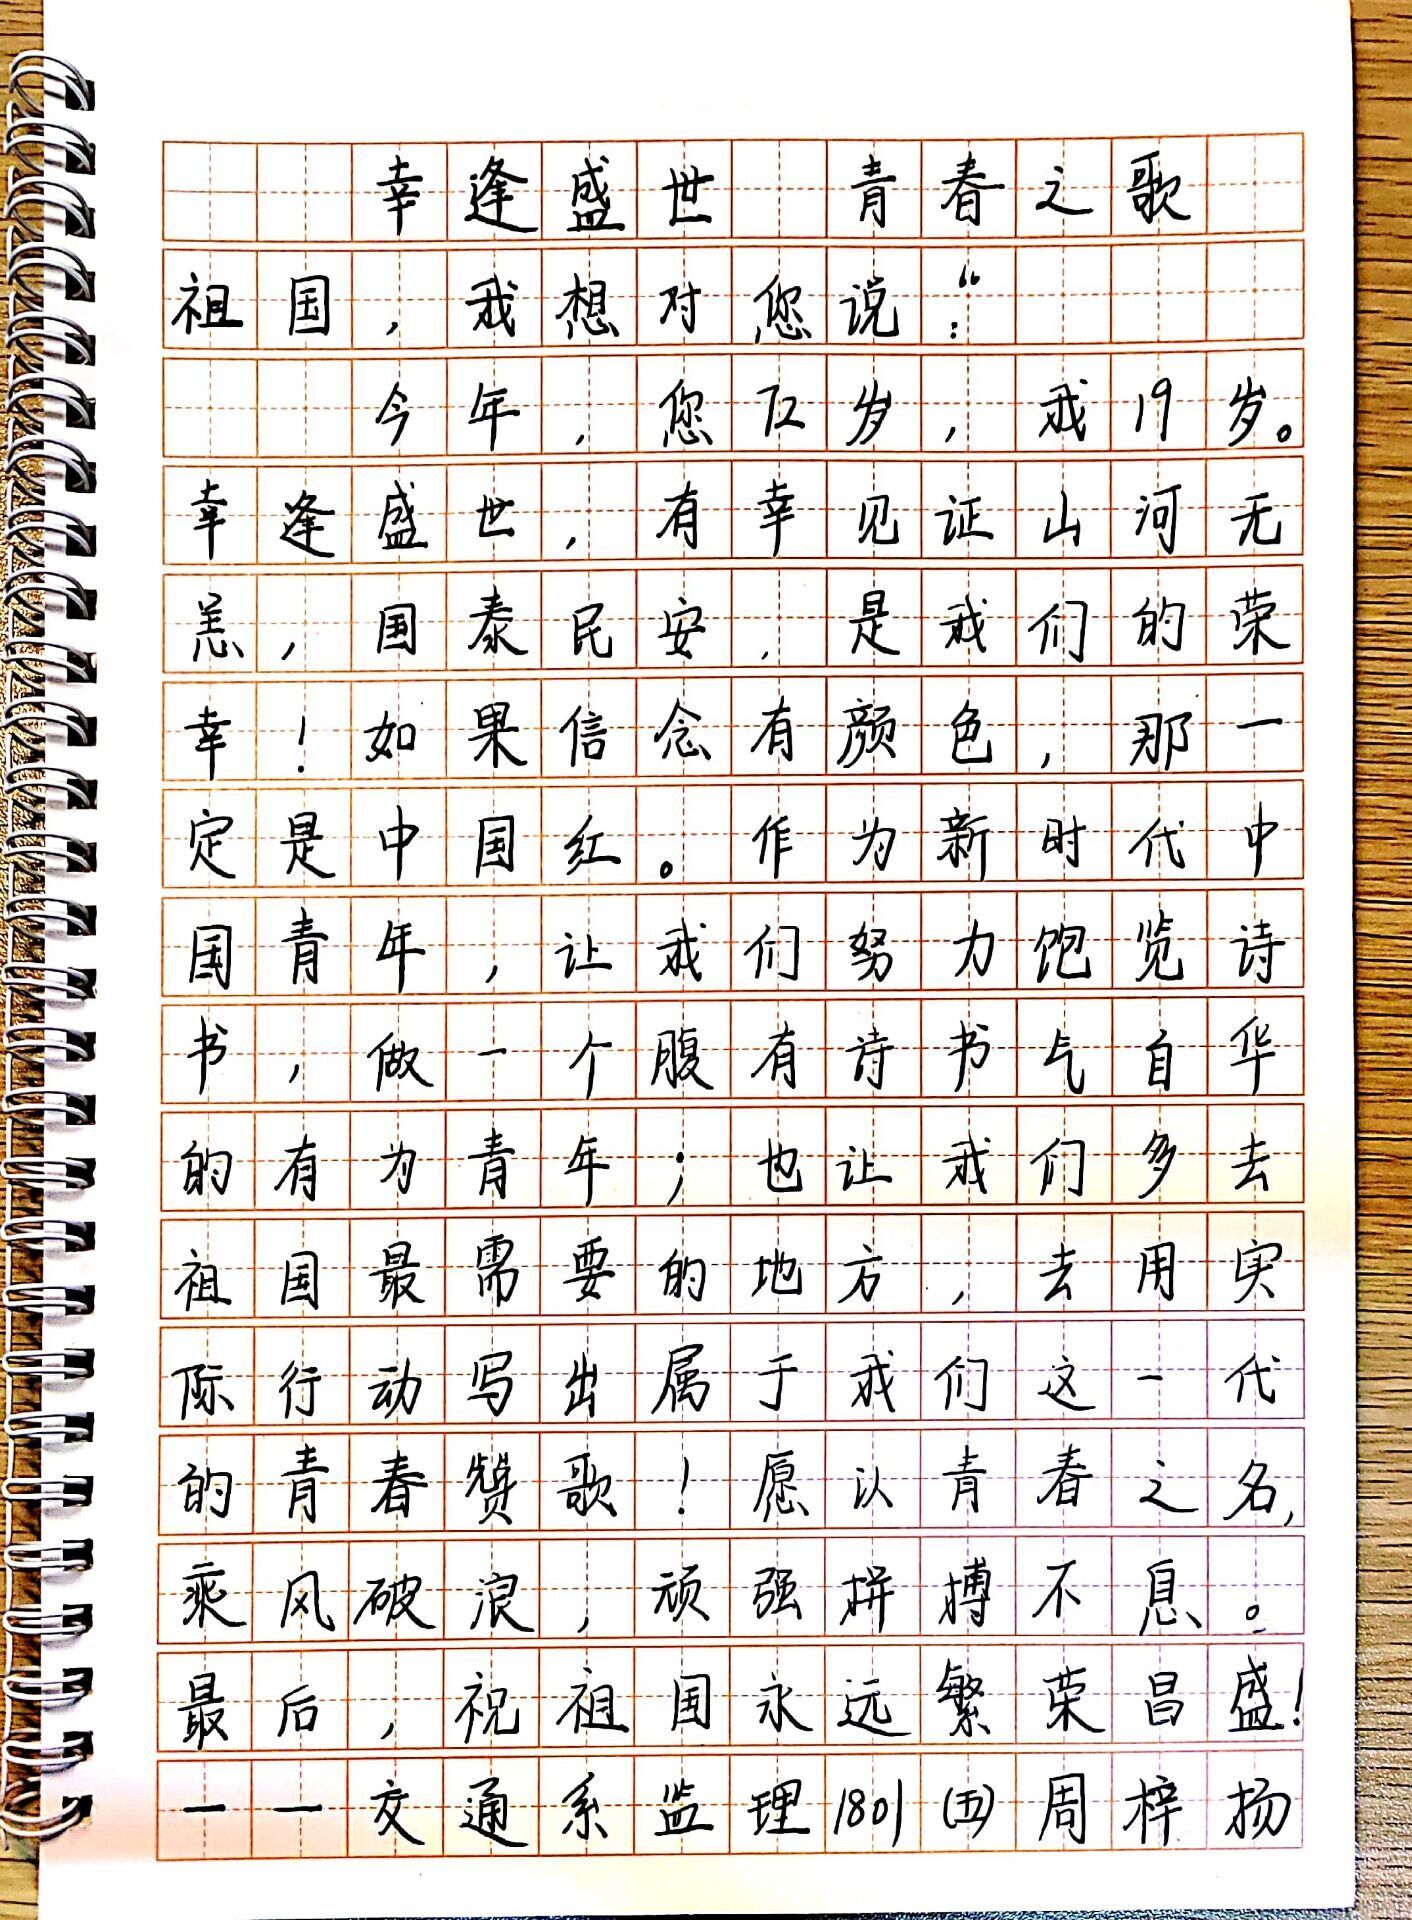 幸逢盛世 青春之歌
祖国，我想对您说：“
今年，您72岁，我19岁。
幸逢盛世，有幸见证山河无
恙，国泰民安，是我们的荣
幸！如果信念有颜色，那一
定是中国红。作为新时代中
国青年，让我们努力饱览诗
书，做一个腹有诗书气自华
的有为青年；也让我们多去
祖国最需要的地方，去用实
际行动写出属于我们这一代
的青春赞歌！愿以青春之名，
乘风破浪，顽强拼搏不息。
最后，祝祖国永远繁荣昌盛！
——交通系监理1801(五)周梓扬